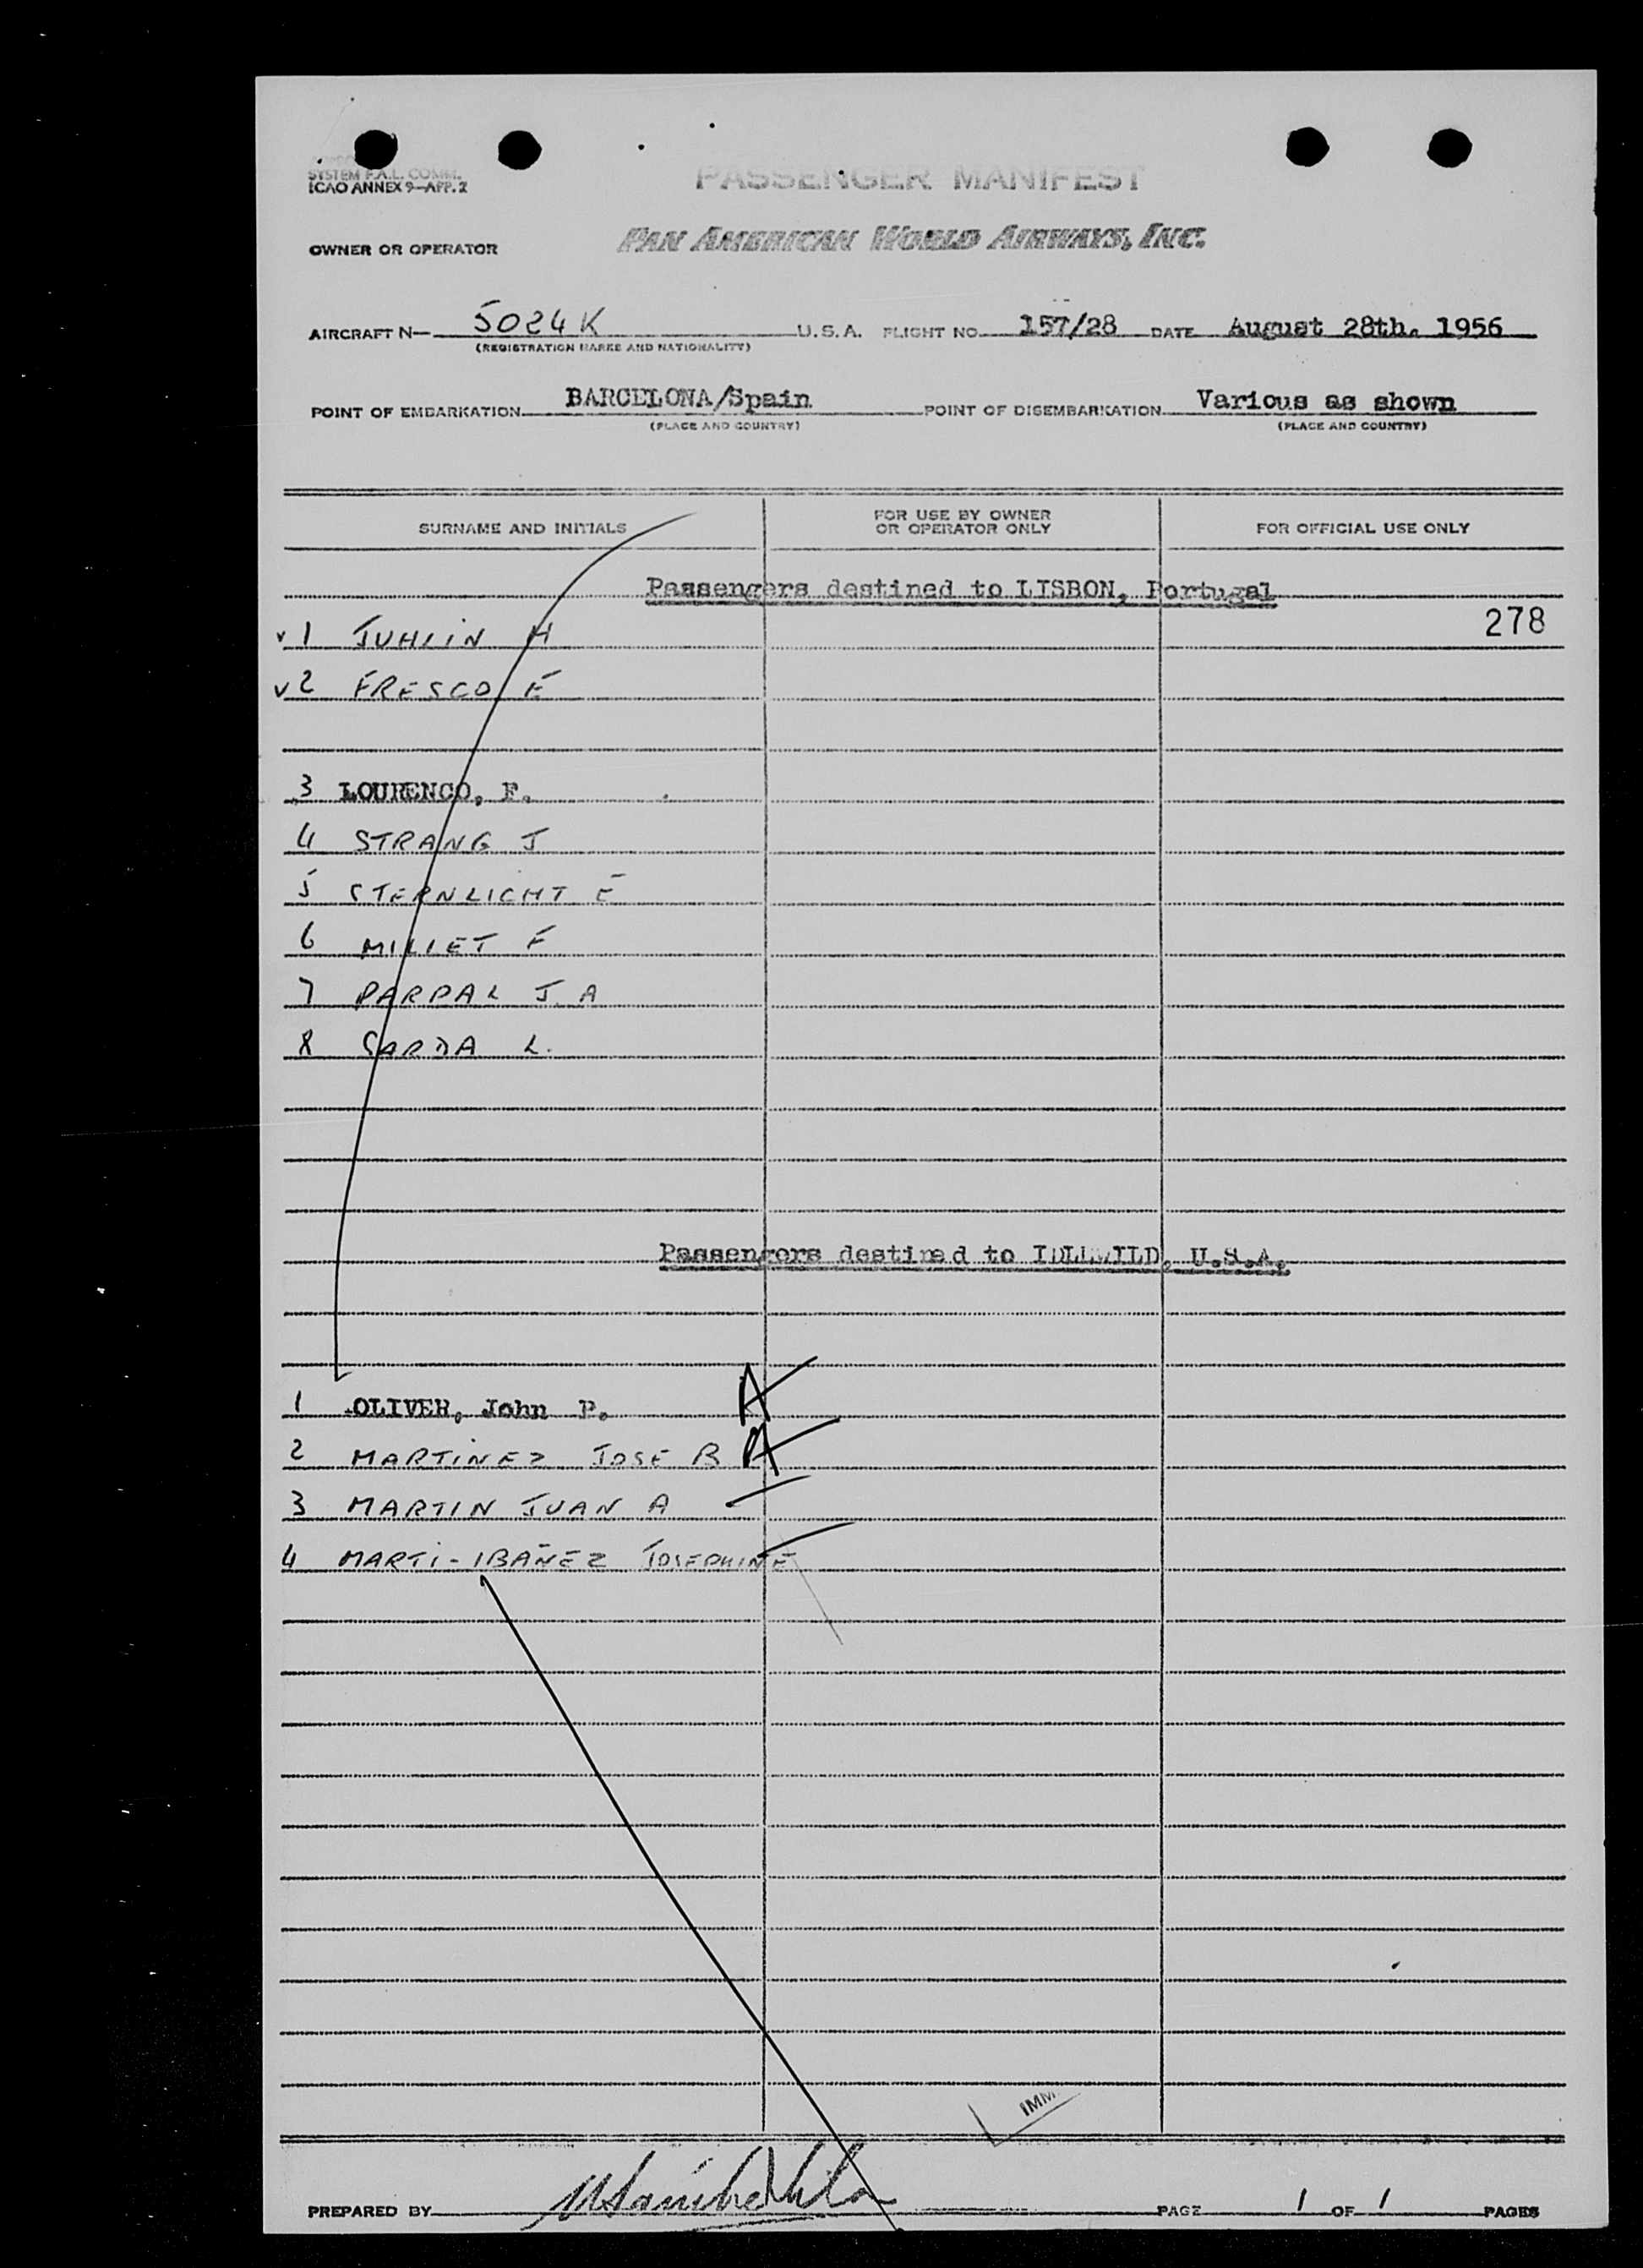 SYSTEM F.A.L. COMM.
ICAO ANNEX 9—APP. 2
PASSENGER MANIFEST
OWNER OR OPERATOR PAN AMERICAN WORLD AIRWAYS, INC.
AIRCRAFT N— 5024K U.S.A. FLIGHT NO. 157/28 DATE August 28th. 1956
(REGISTRATION MARKS AND NATIONALITY)
POINT OF EMBARKATION BARCELONA/Spain POINT OF DISEMBARKATION Various as shown
(PLACE AND COUNTRY) (PLACE AND COUNTRY)
SURNAME AND INITIALS FOR USE BY OWNER OR OPERATOR ONLY FOR OFFICIAL USE ONLY
Passengers destined to LISBON, Portugal
278
v 1 JUHLIN H
v 2 FRESCO E
3 LOURENCO, F.
4 STRANG J
5 STERNLICHT E
6 MILLET F
7 PARPAL J. A
8 SARDA L.
Passengers destined to IDLEWILD, U.S.A.
1 OLIVER, John P. A
2 MARTINEZ JOSE B A
3 MARTIN JUAN A
4 MARTI-IBAÑEZ JOSEPHINE
IMM
PREPARED BY PAGE 1 OF 1 PAGES